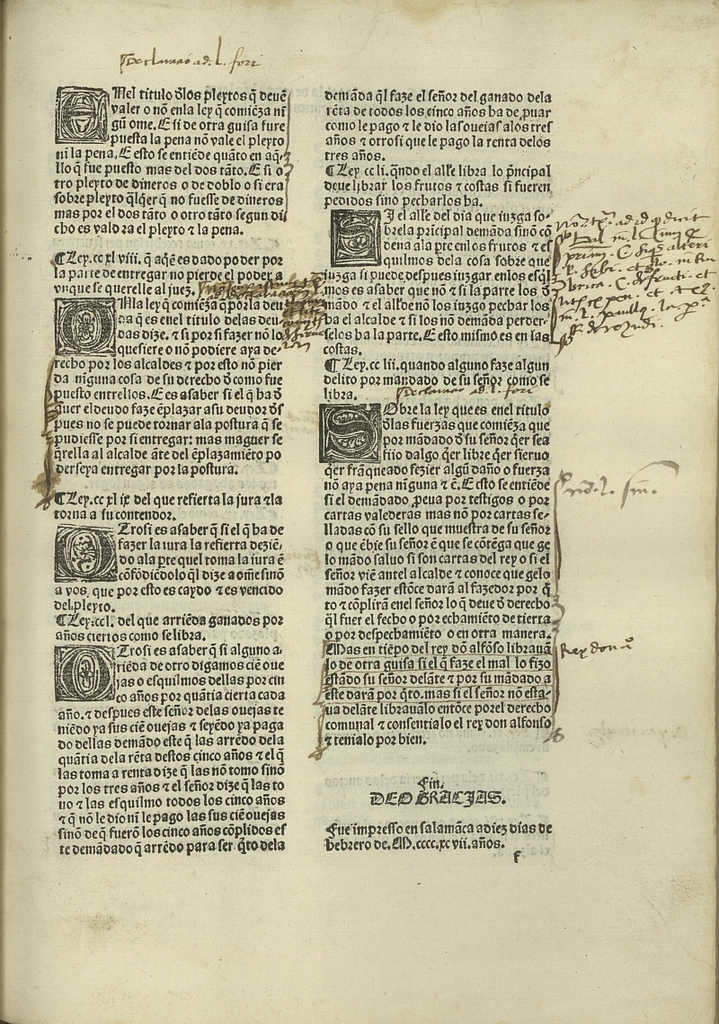 Declaracio ad. l. fori
EMel titulo đlos pleytos q̄ deuē
valer o nō enla ley q̄ comiēza nin
gū ome. E si de otra guisa fure
puesta la pena nō vale el pleyto
ni la pena. E esto se entiēde quāto en aq̄-
llo q̄ fue puesto mas del dos tāto. E si o
tro pleyto de dineros o de doblo o si era
sobre pleyto q̄lq̄er q̄ no fuesse de dineros
mas por el dos tāto o otro tāto segun di
cho es valdra el pleyto ⁊ la pena.
¶ Ley. cc xl viii. q̄ aq̄l es dado poder por
la parte de entregar no pierde el poder a
vnque se querelle al juez.
ONla ley q̄ comiēça q̄ porla deu
da q̄ es enel titulo delas deu
das dize. ⁊ si por si fazer nō lo
quesiere o nō podiere aya de-
recho por los alcaldes ⁊ por esto nō pier
da ninguna cosa de su derecho đ como fue
puesto entrellos. E es asaber si el q̄ ha đ
auer el deudo faze ēplazar asu deudor đs
pues no se puede tornar ala postura q̄ se
pudiesse por si entregar: mas maguer se
q̄rella al alcalde āte del ēplazamiēto po
derseya entregar por la postura.
¶ Ley. cc xl ix del que refierta la jura ⁊ la
torna a su contendor.
OTrosi es asaber q̄ si el q̄ ha de
fazer la iura la refierta deziē-
do ala pte quel toma la iura ē
cōfōdiēdolo q̄l dize a ome sinō
a vos, que por esto es caydo ⁊ es vencido
del pleyto.
¶ Ley: ccl. del que arriēda ganados por
años ciertos como se libra.
OTrosi es asaber q̄ si alguno a-
rriēda de otro digamos ciē oue
jas o esquilmos dellas por cin
co años por quātia cierta cada
año. ⁊ despues este señor delas ouejas te
niēdo ya sus ciē ouejas ⁊ seyēdo ya paga
do dellas demādo este q̄ las arrēdo dela
quātia dela rēta destos cinco años ⁊ el q̄
las toma a renta dize q̄ las nō tomo sinō
por los tres años ⁊ el señor dize q̄ las to
uo ⁊ las esquilmo todos los cinco años
⁊ q̄ nō le dio ni le pago las sus ciē ouejas
sinō de q̄ fuerō los cinco años cōplidos es
te demādado q̄ arrēdo para ser q̄to dela
demāda q̄l faze el señor del ganado dela
rēta de todos los cinco años ha de, puar
como le pago ⁊ le dio las oueias alos tres
años ⁊ otrosi que le pago la renta delos
tres años.
¶ Ley. cc li. q̄ndo el alłe libra lo p̄ncipal
deue librar los frutos ⁊ costas si fueren
pedidos sino pecharlos ha.
SJ el alłe del dia que iuzga so-
brela p̄ricipal demāda sinō cō
dena ala pte enlos frutos ⁊ es
quilmos dela cosa sobre que
iuzga si puede despues iuzgar enlos esq̄l
mos es asaber que nō ⁊ si la parte los đ
mādo ⁊ el alłde nō los iuzgo pechar los
ha el alcalde ⁊ si los nō demāda perder-
selos ha la parte. E esto mismo es en las
costas.
¶ Ley. cc lii. quando alguno faze algun
delito por mandado de su señor como se
libra.
Declaracio ad. l. fori
SObre la ley que es enel titulo
đlas fuerzas que comiēça que
por mādado đ su señor q̄er sea
fiio dalgo q̄er libre q̄er sieruo
q̄er frāqueado fezier algū daño o fuerza
nō aya pena ninguna ⁊ c̄. Esto se entiēde
si el demādado, peua por testigos o por
cartas valederas mas nō por cartas se-
lladas cō su sello que muestra de su señor
o que ēbie su señor ē que se cōtēga que ge
lo mādo saluo si son cartas del rey o si el
señor viē antel alcalde ⁊ conoce que gelo
mādo fazer estōce dará al fazedor por q̄
to ⁊ cōplirā enel señor lo q̄ deue đ derecho
q̄l fuer el fecho o por echamiēto de tierra
o por despechamiēto o en otra manera.
Mas en tiēpo del rey dō alfōso librauā
lo de otra guisa si el q̄ faze el mal lo fizo
estādo su señor delāte ⁊ por su mādado a
este darā por q̄to. mas si el señor nō esta-
ua delāte librauālo entōce porel derecho
comunal ⁊ consentialo el rey don alfonso
⁊ tenialo por bien.
Fin.
DEO GRACIAS.
Fue impresso en salamāca a diez dias de
hebrero de. M. cccc. xc vii. años.
f